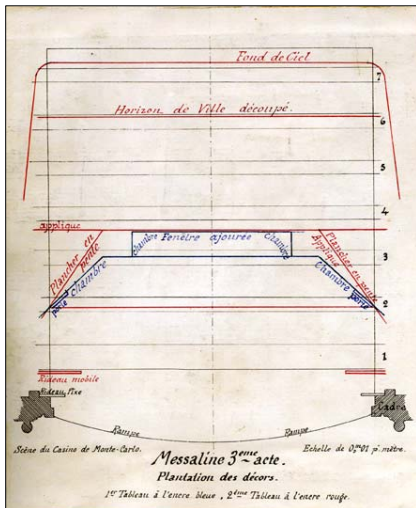 Fond de Ciel
7
Horizon de Ville découpé.
6
5
4
applique
Plancher en pente
chambre Fenêtre ajourée chambre
Applique
Plancher en pente
3
porte chambre
Chambre porte
2
1
Rideau mobile
Rideau fixe
Cadre
Rampe Rampe
Scène du Casino de Monte-Carlo.
Echelle de 0,m01 p. mètre.
Messaline 3eme acte.
Plantation des décors.
1er Tableau à l'encre bleue, 2ème Tableau à l'encre rouge.